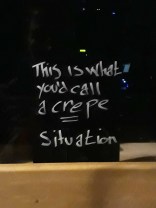 This is what
you'd call
a crepe
Situation